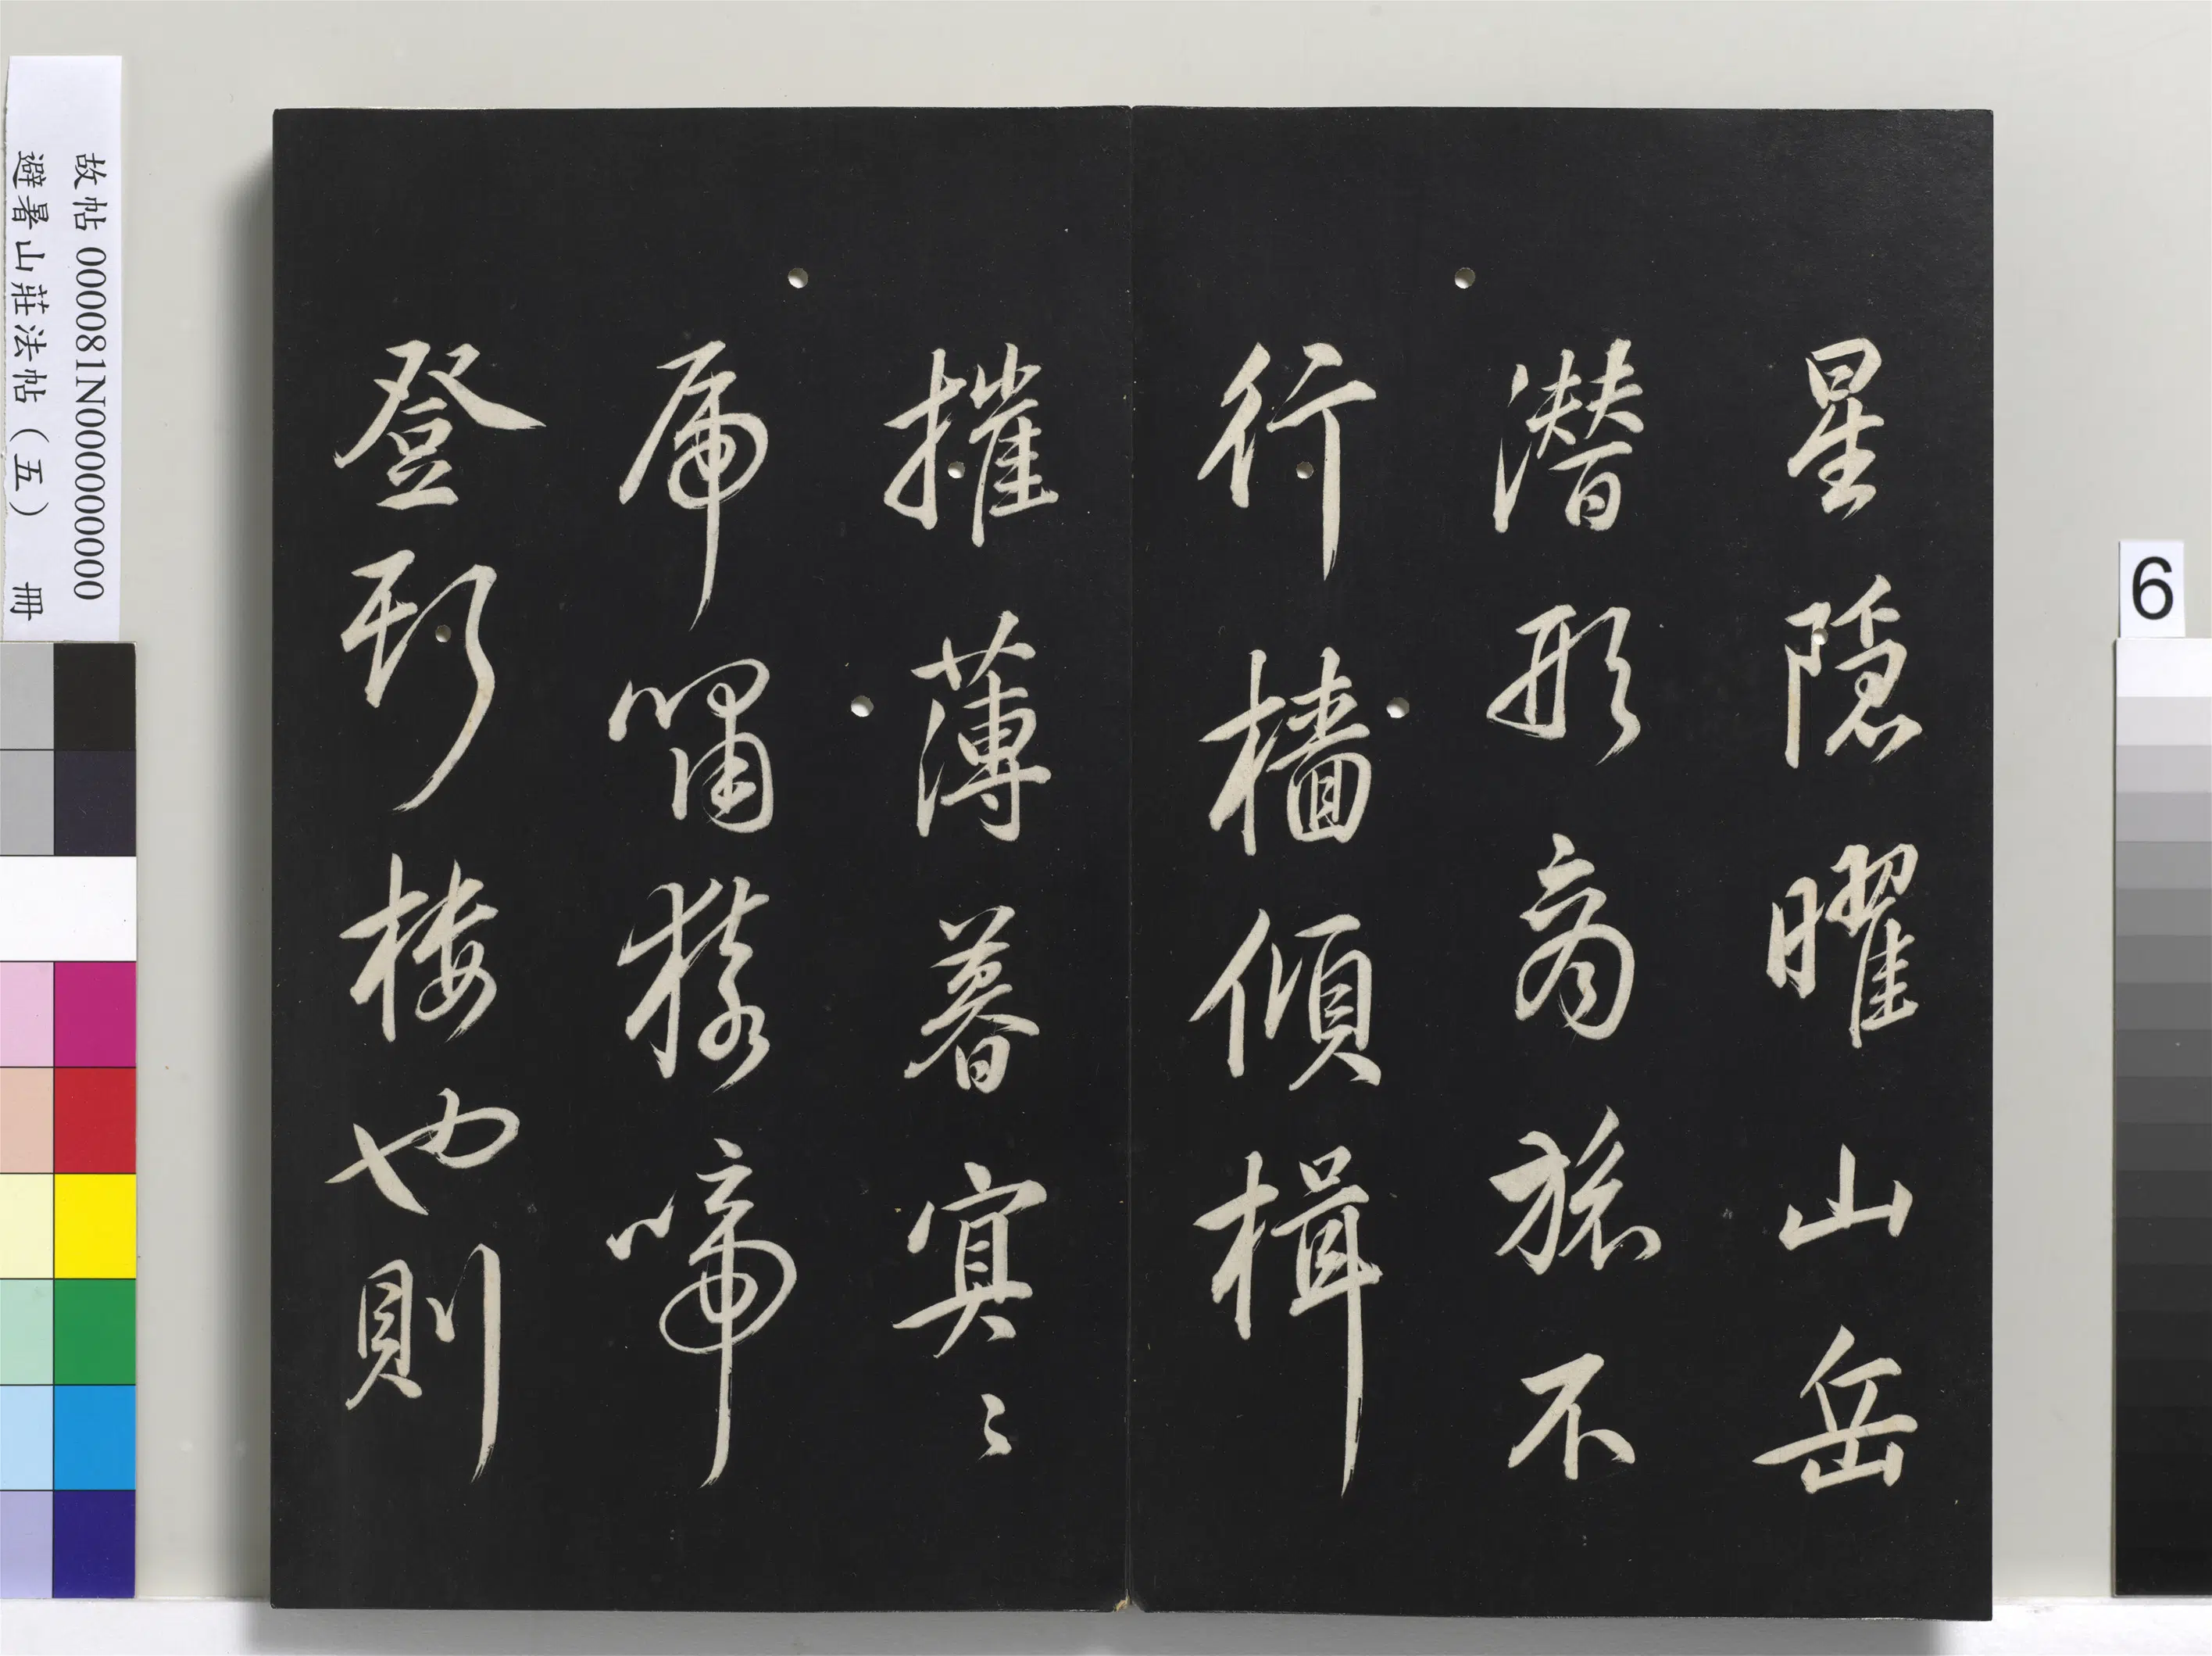 故帖 000081N000000000
避暑山莊法帖（五） 冊
6
星隱曜山岳
潜形商旅不
行檣傾楫
摧薄暮冥〻
虎嘯猿啼
登斯樓也則